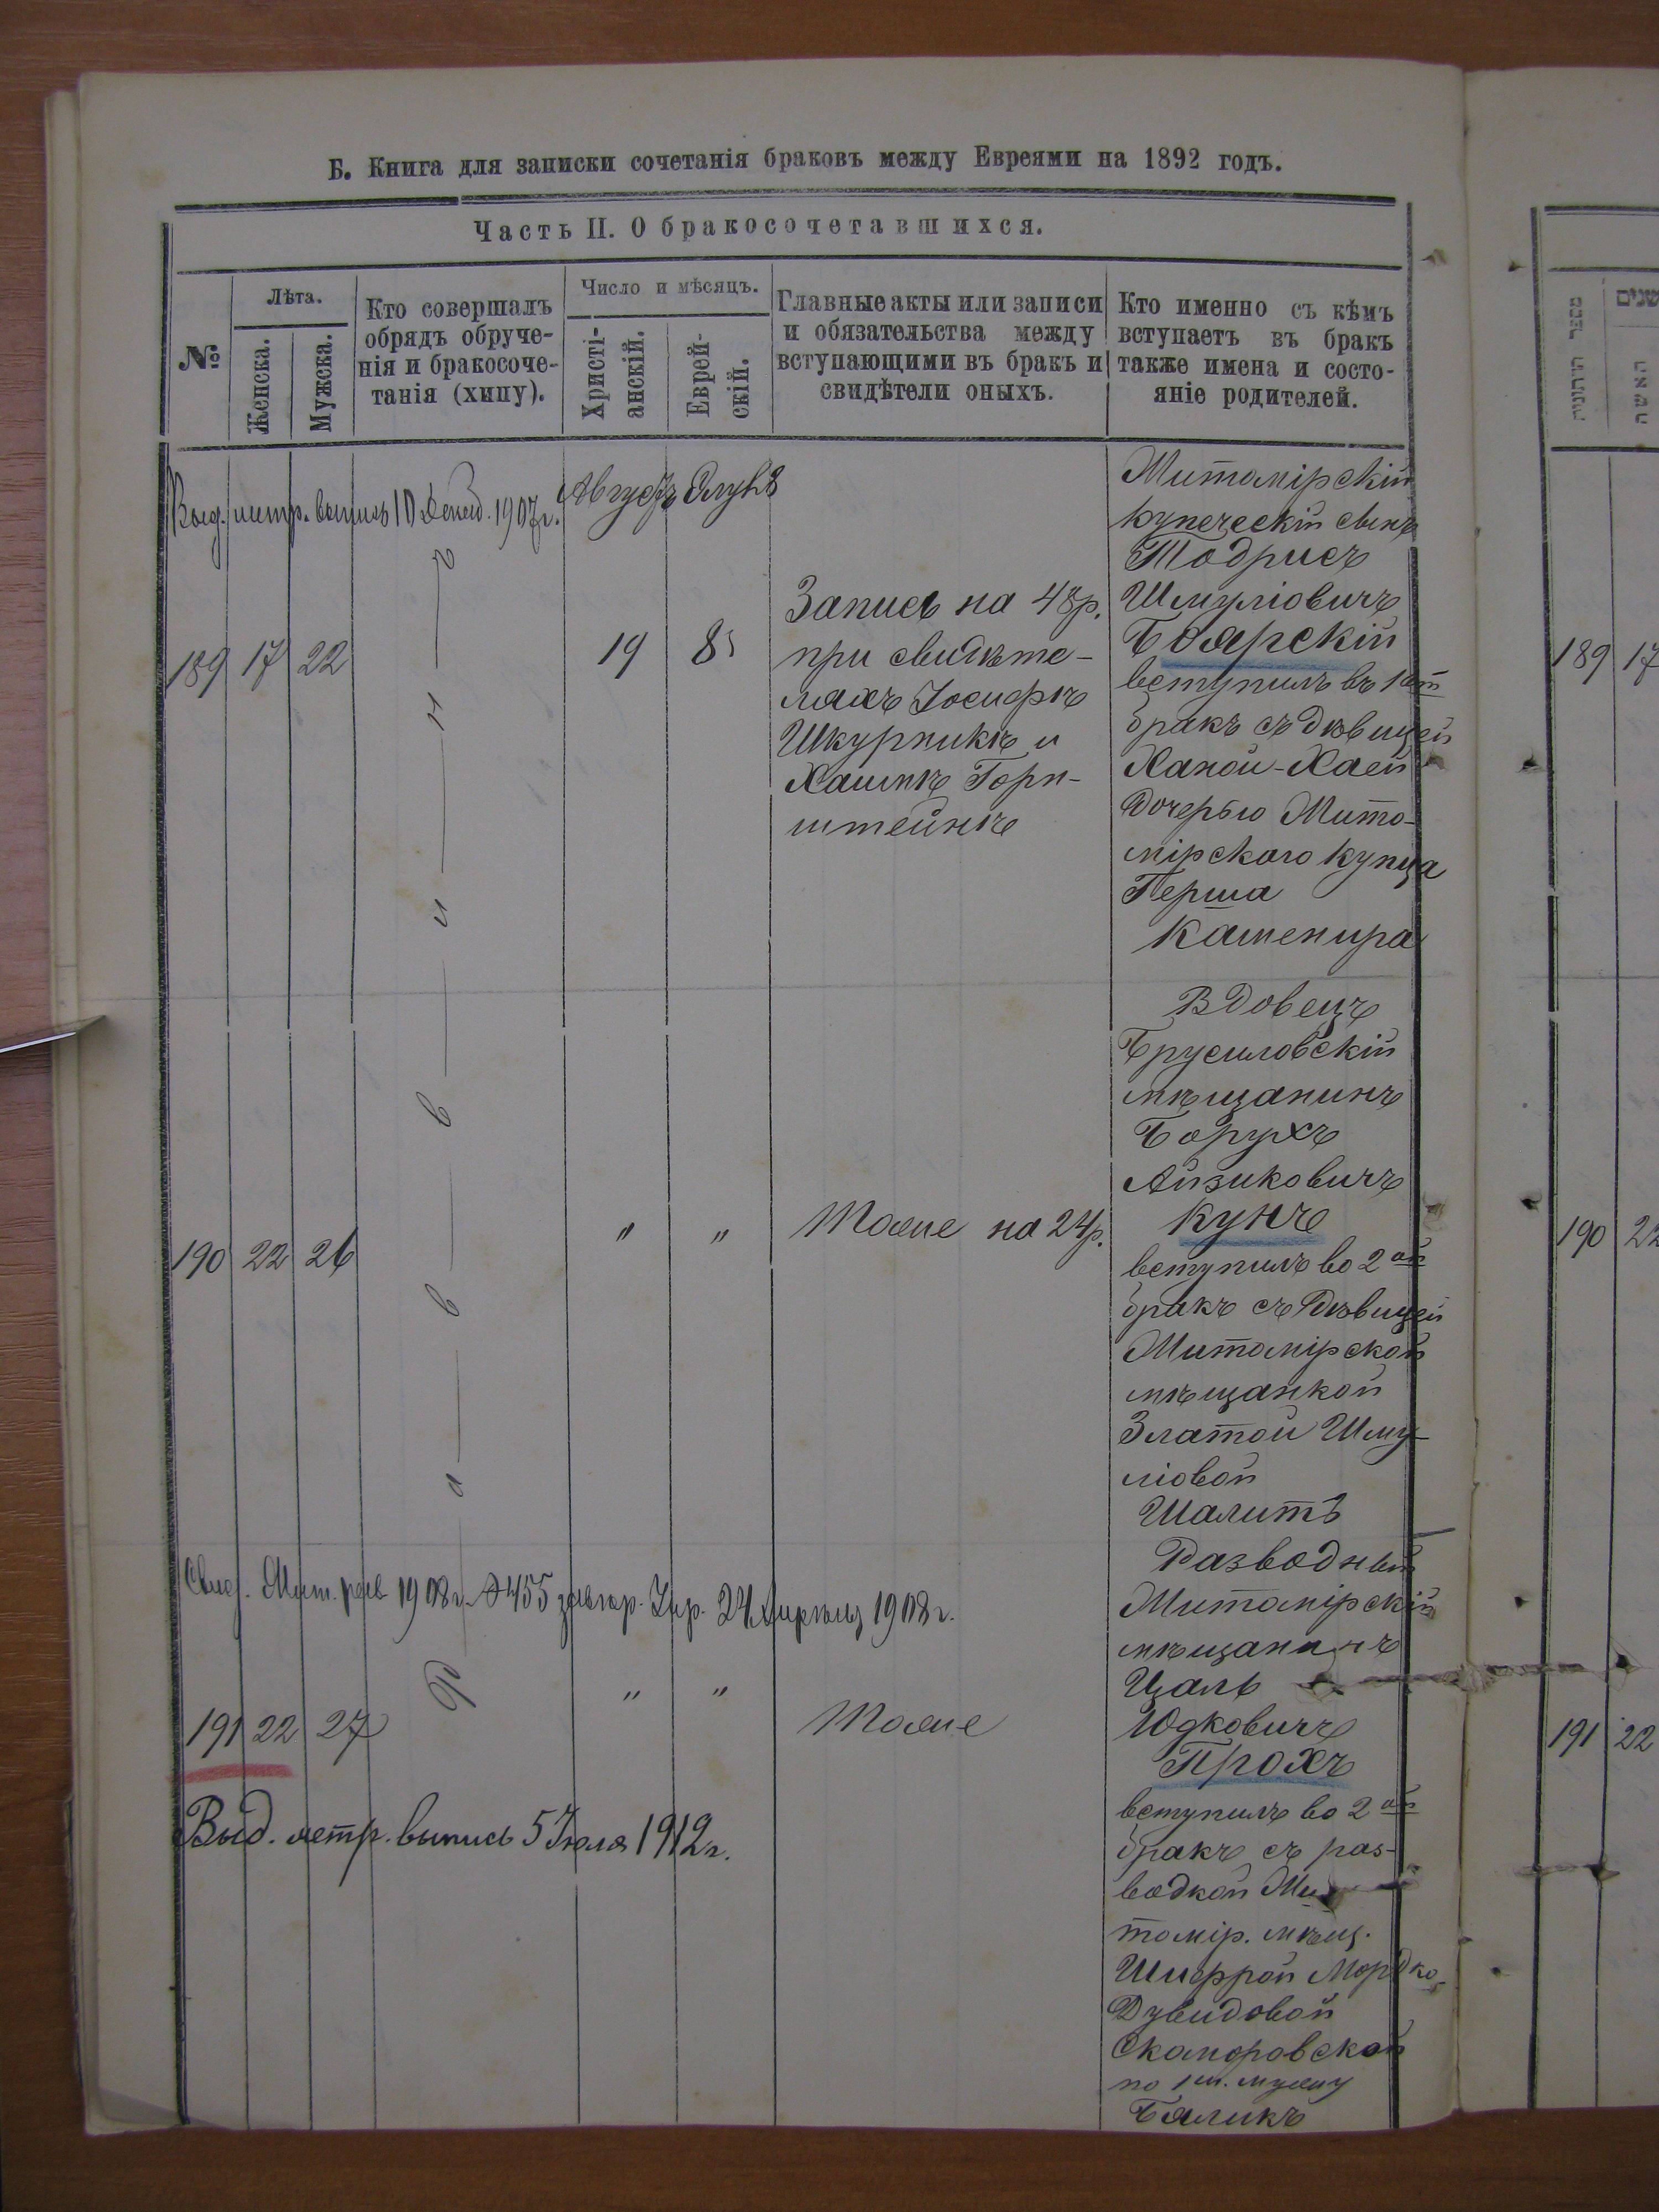 Б. Книга для записки сочетанія браковъ между Евреями на 1892 годъ.
Часть II. О бракосочетавшихся.
№
Лѣта.
Женска.
Мужска.
Кто совершалъ
обрядъ обруче-
нія и бракосоче-
танія (хипу).
Число и мѣсяцъ.
Христі-
анскій.
Еврей-
скій.
Главные акты или записи
и обязательства между
вступающими въ бракъ и
свидѣтели оныхъ.
Кто именно съ кѣмъ
вступаетъ въ бракъ
также имена и состо-
яніе родителей.
метр. выпись 10 1907г.
Августъ
189 17 22
19 8
Запись на 48р.
при свидѣте-
ляхъ Іосифѣ
Шкурникѣ и
Хаимѣ Горн-
штейнѣ
Житомірскій
купеческій сынъ
Тодрисъ
Шмуліовичъ
Боярскій
вступилъ въ 1ый
бракъ съ дѣвицей
Ханой-Хаей
дочерью Жито-
мірскаго купца
Герша
Каменира
190 22 26
" "
Тоже на 24р.
Вдовецъ
Брусиловскій
мѣщанинъ
Борухъ
Айзиковичъ
Кунъ
вступилъ во 2ой
бракъ съ дѣвицей
Житомірской
мѣщанкой
Златой Шму-
ліовой
Шалитъ
1908г. № 455 24 Апрѣля 1908г.
191 22 27
" "
Тоже
Разводный
Житомірскій
мѣщанинъ
Цаль
Юдковичъ
Прохъ
вступилъ во 2ой
бракъ съ раз-
водкой Жи-
томір. мѣщ.
Шифрой Мордко-
Дувидовой
Скоморовской
по 1ому мужу
Бяликъ
Выд. метр. выпись 5 Іюля 1912г.
Р а в в и н ъ
מספר החתונות
שנים
האשה
189 17
190 22
191 22